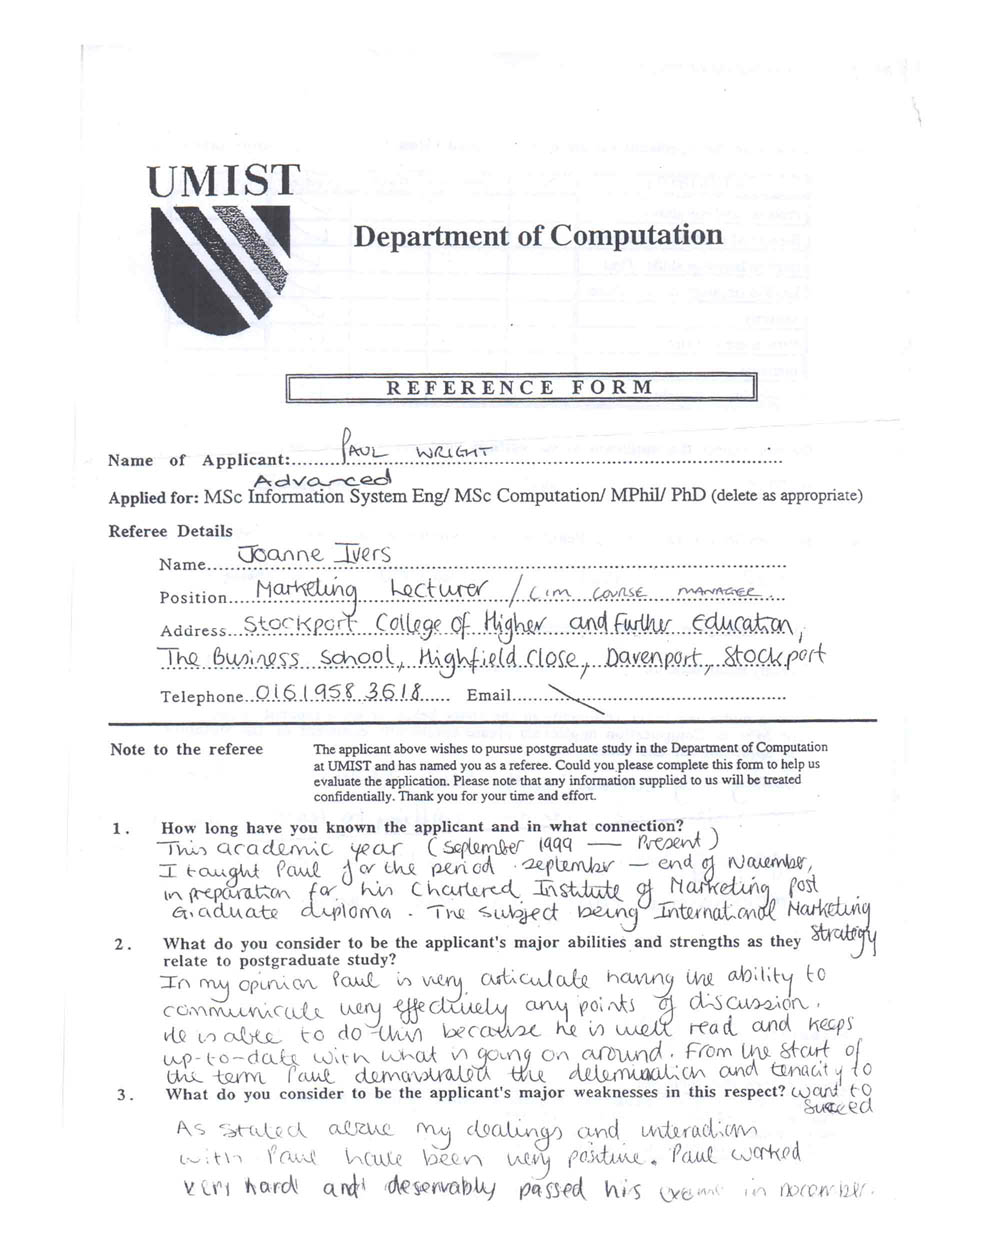 UMIST
Department of Computation
REFERENCE FORM
Name of Applicant: PAUL WRIGHT
Advanced
Applied for: MSc Information System Eng/ MSc Computation/ MPhil/ PhD (delete as appropriate)
Referee Details
Name Joanne Ivers
Position Marketing Lecturer / CIM COURSE MANAGER
Address Stockport College of Higher and Further Education,
The Business School, Highfield Close, Davenport, Stockport
Telephone 0161 958 3618 Email
Note to the referee
The applicant above wishes to pursue postgraduate study in the Department of Computation
at UMIST and has named you as a referee. Could you please complete this form to help us
evaluate the application. Please note that any information supplied to us will be treated
confidentially. Thank you for your time and effort.
1. How long have you known the applicant and in what connection?
This academic year (September 1999 — Present)
I taught Paul for the period September — end of November,
in preparation for his Chartered Institute of Marketing Post
Graduate diploma. The subject being International Marketing
Strategy
2. What do you consider to be the applicant's major abilities and strengths as they
relate to postgraduate study?
In my opinion Paul is very articulate having the ability to
communicate very effectively any points of discussion.
He is able to do this because he is well read and keeps
up-to-date with what is going on around. From the start of
the term Paul demonstrated the determination and tenacity to
want to
succeed
3. What do you consider to be the applicant's major weaknesses in this respect?
As stated above my dealings and interactions
with Paul have been very positive. Paul worked
very hard and deservably passed his exams in November.